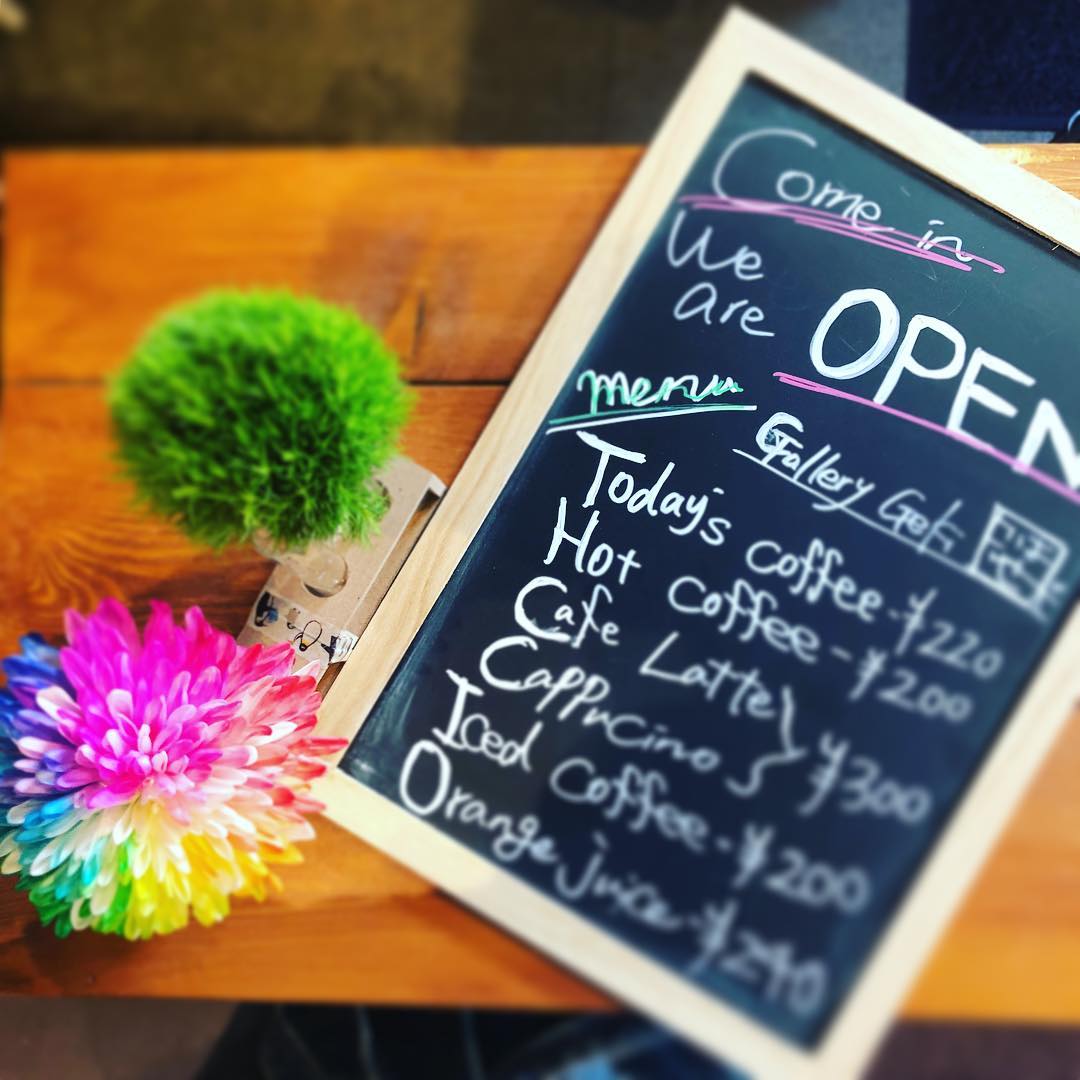 Come in
We
are OPEN
menu
Gallery
Today's coffee - ¥220
Hot coffee - ¥200
Cafe Latte
Cappucino } ¥300
Iced coffee - ¥200
Orange juice - ¥240